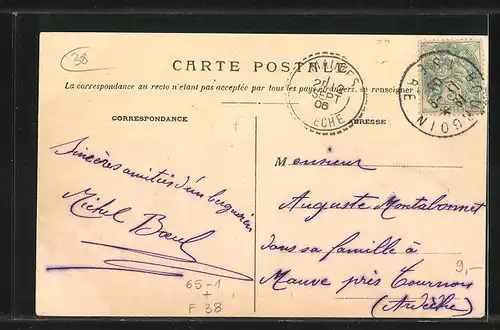 38
CARTE POSTALE
La correspondance au recto n'étant pas acceptée par tous les pays étrangers, se renseigner
CORRESPONDANCE
ADRESSE:
20
SEPT
06
BOURGOIN
ISÈRE
Sincères amitiés d'un
Michel
Monsieur
Auguste Montabonnet
dans sa famille à
Mauve près Tournon
(Ardèche)
9,-
65-1
+
F 38